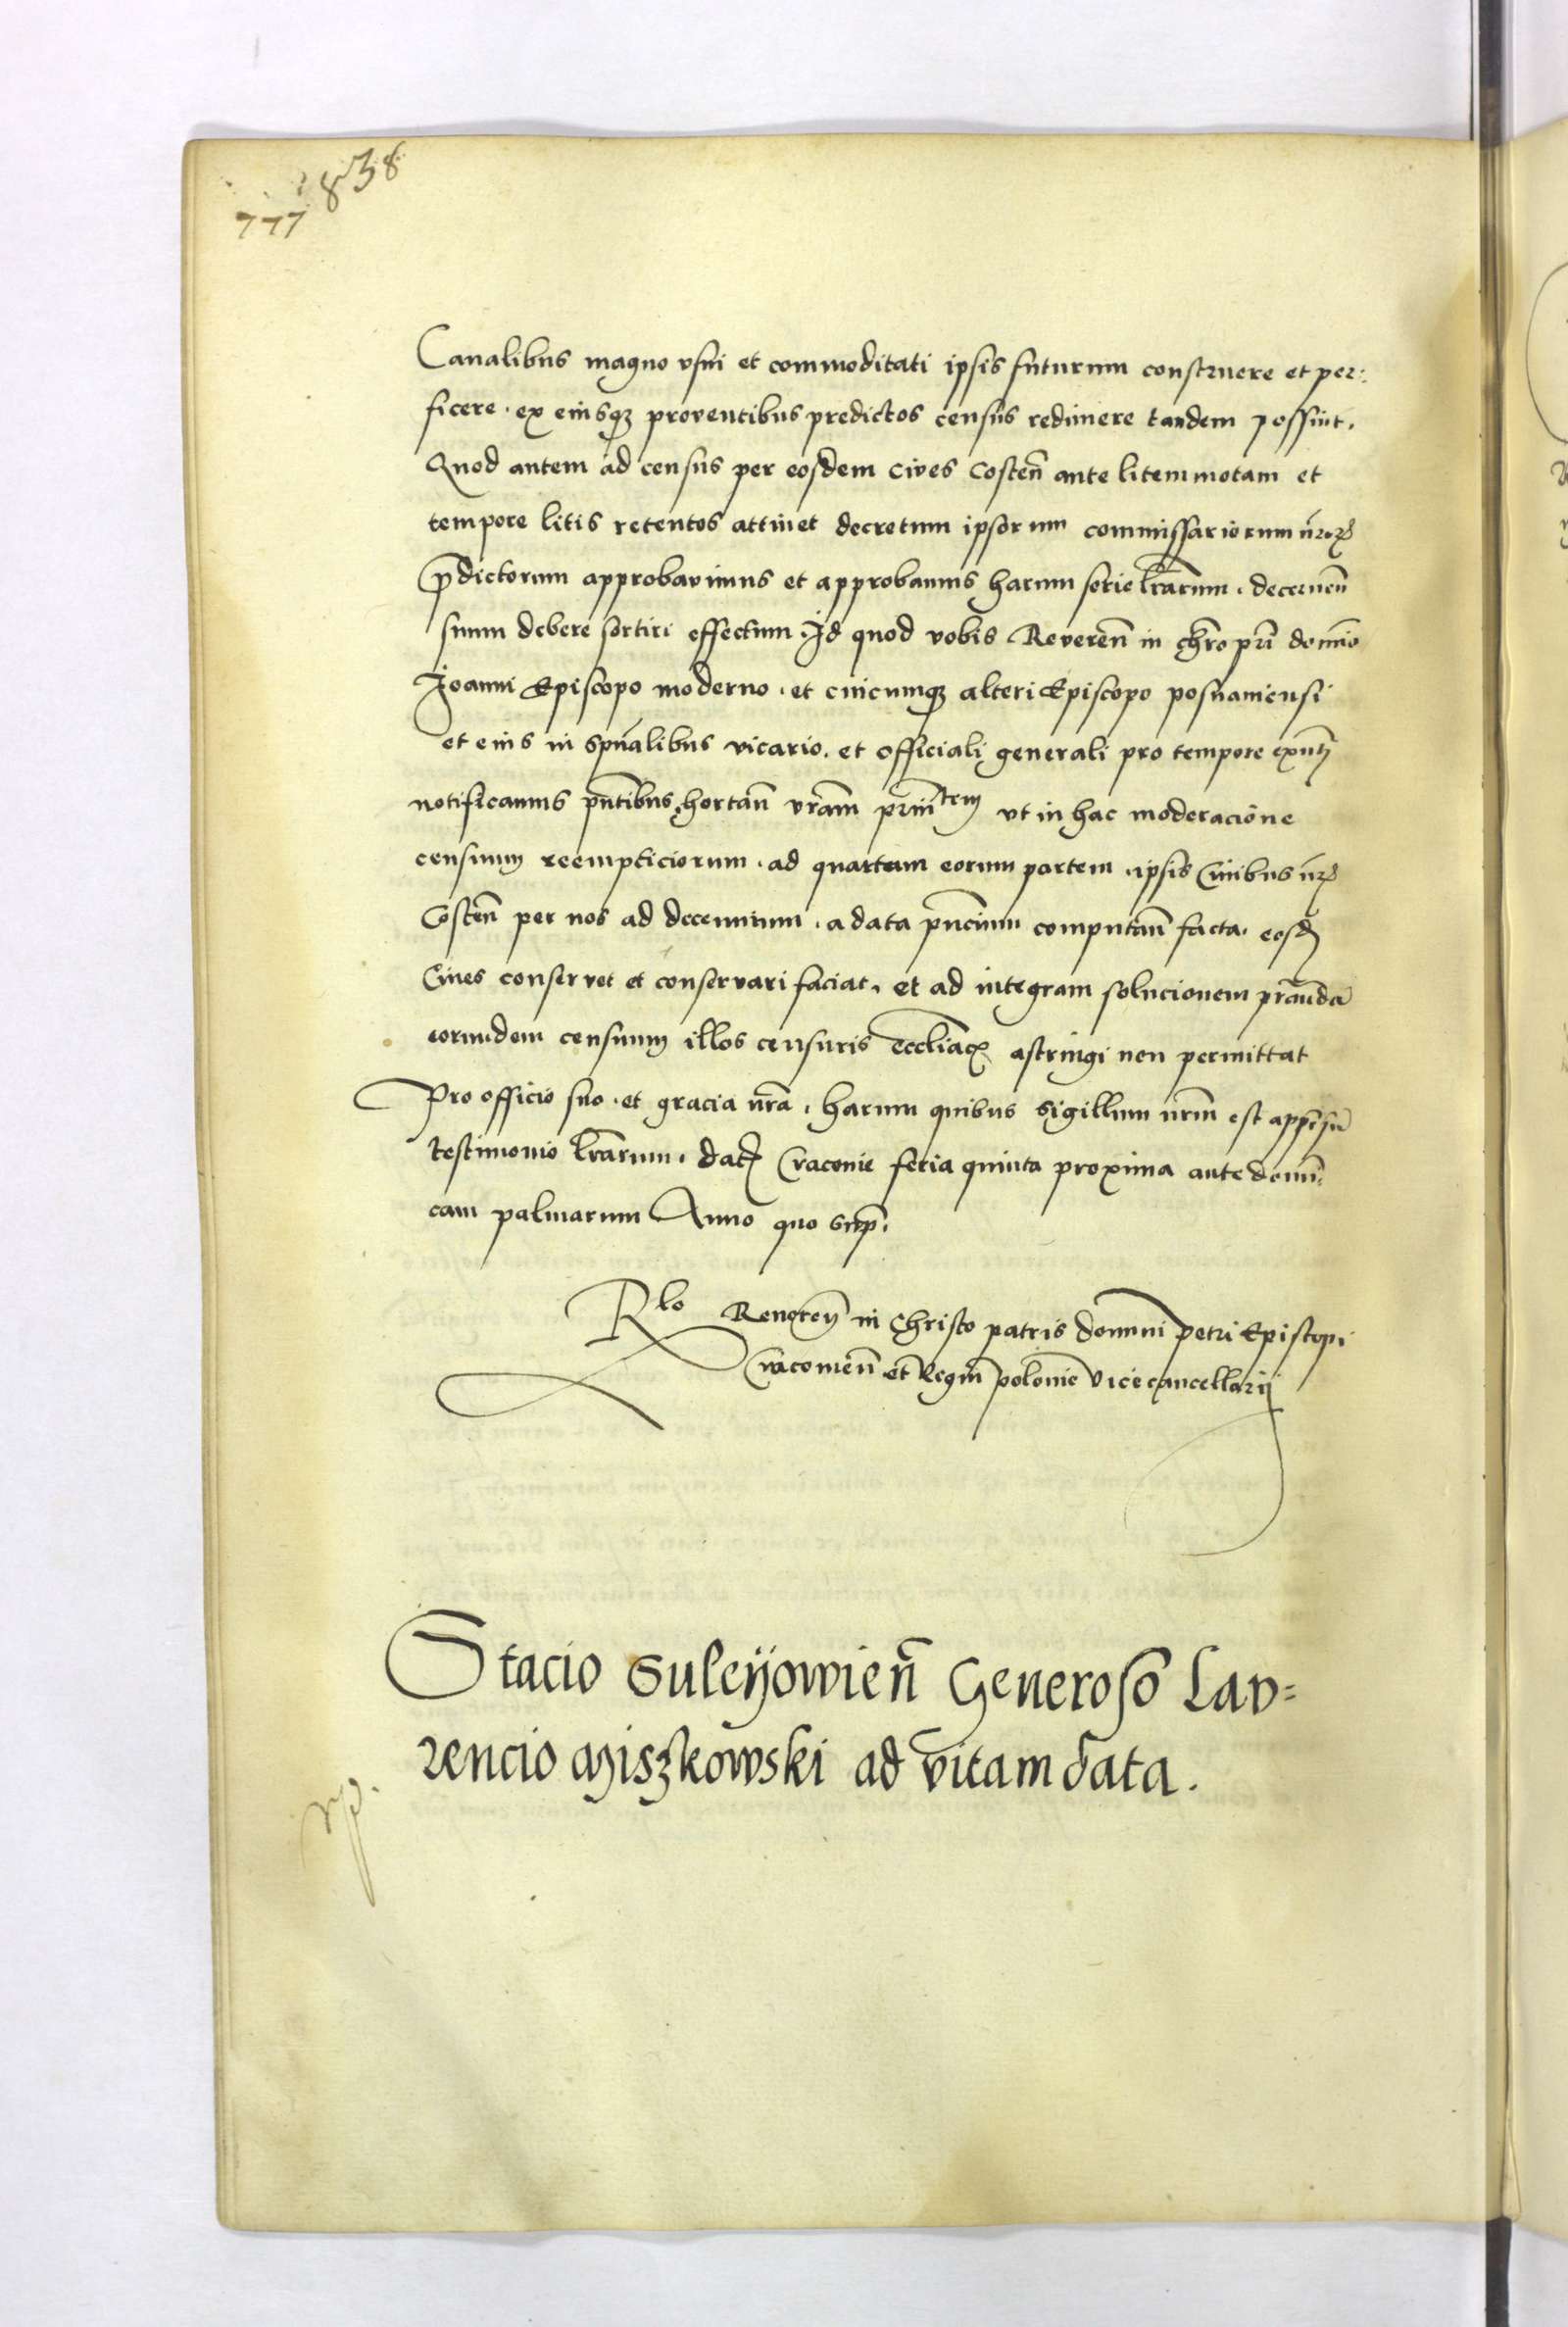 838
777
Canalibus magno vsui et commoditati ipsis futurum construere et per:
ficere. ex eiusqʒ proventibus predictos census redimere tandem possint.
Quod autem ad census per eosdem cives Costeñ ante litem motam et
tempore litis retentos attinet decretum ipsorum commissariorum nr̃oꝝ
p̱dictorum approbavimus et approbamus harum serie lr̃arum. decerneñ
suum debere sortiri effectum. Id quod vobis Revereñ in chr̃o pr̃i domĩo
Joanni Episcopo moderno. et cuicumqʒ alteri Episcopo posnaniensi
et eius in spũalibus vicario. et officiali generali pro tempore exñti
notificamus pñtibus, hortañ vr̃am prĩntem vt in hac moderacione
censuum reempticiorum. ad quartam eorum partem. ipsis Civibus nr̃is
Costeñ per nos ad decennium. a data pñcium computañ facta. eosd̃
Cives conservet et conservari faciat. et ad integram solucionem pr̃auda
eorundem censuum illos censuris eccl̃iacꝭ astringi non permittat
Pro officio suo. et gracia nr̃a. harum quibus sigillum nr̃m est appēsū
testimonio lr̃arum. datꝭ Cracovie feria quinta proxima ante domĩ:
cam palmarum Anno quo sup̃.
Rlo Revereñ in Christo patris domini Petri Episcopi
Cracovieñ et Regñi polonie Vicecancellarij
Stacio Suleÿowieñ Generoso Lav=
rencio Miszkowski ad vitam data.